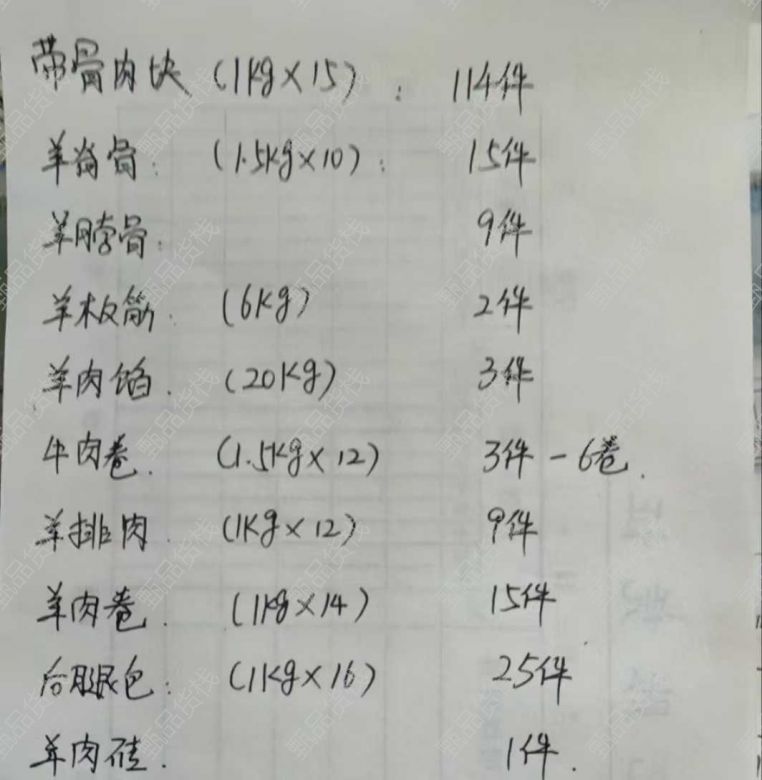 带骨肉块 (1kg×15): 114件
羊脊骨: (1.5kg×10): 15件
羊脖骨: 9件
羊板筋: (6kg) 2件
羊肉馅. (20kg) 3件
牛肉卷. (1.5kg×12) 3件-6卷.
羊排肉 (1kg×12) 9件
羊肉卷. (1kg×14) 15件
后腿包: (1kg×16) 25件
羊肉砖. 1件.